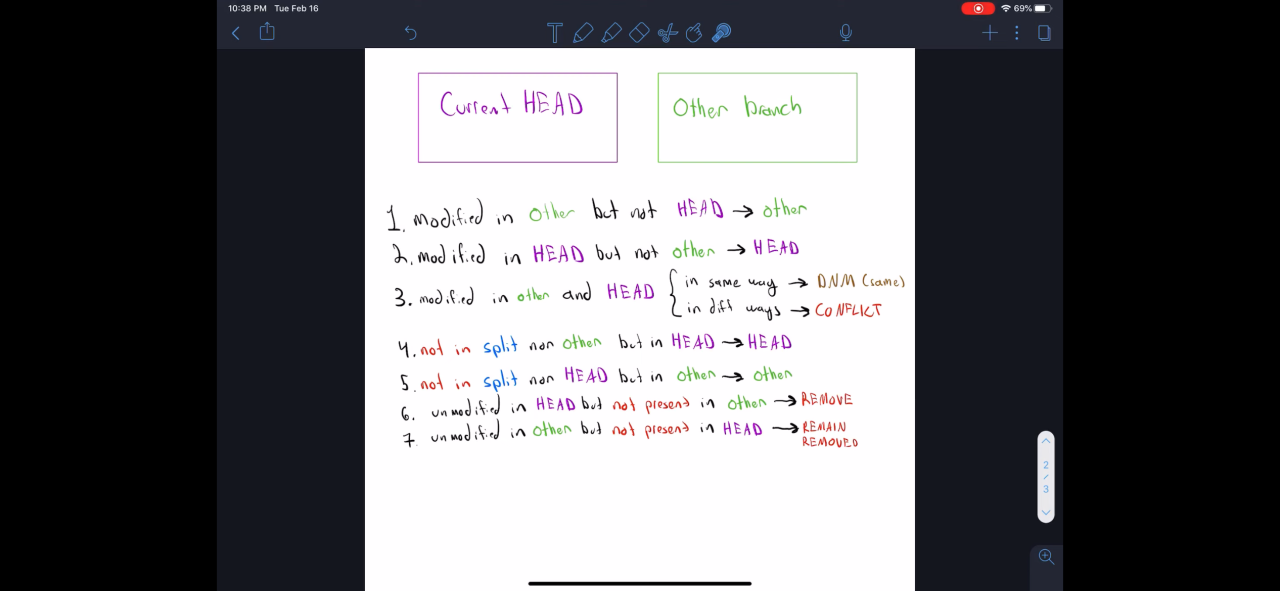 10:38 PM Tue Feb 16
69%
Current HEAD
Other branch
1. modified in other but not HEAD → other
2. modified in HEAD but not other → HEAD
3. modified in other and HEAD { in same way → DNM (same)
in diff ways → CONFLICT
4. not in split nor other but in HEAD → HEAD
5. not in split nor HEAD but in other → other
6. unmodified in HEAD but not present in other → REMOVE
7. unmodified in other but not present in HEAD → REMAIN
REMOVED
2
/
3